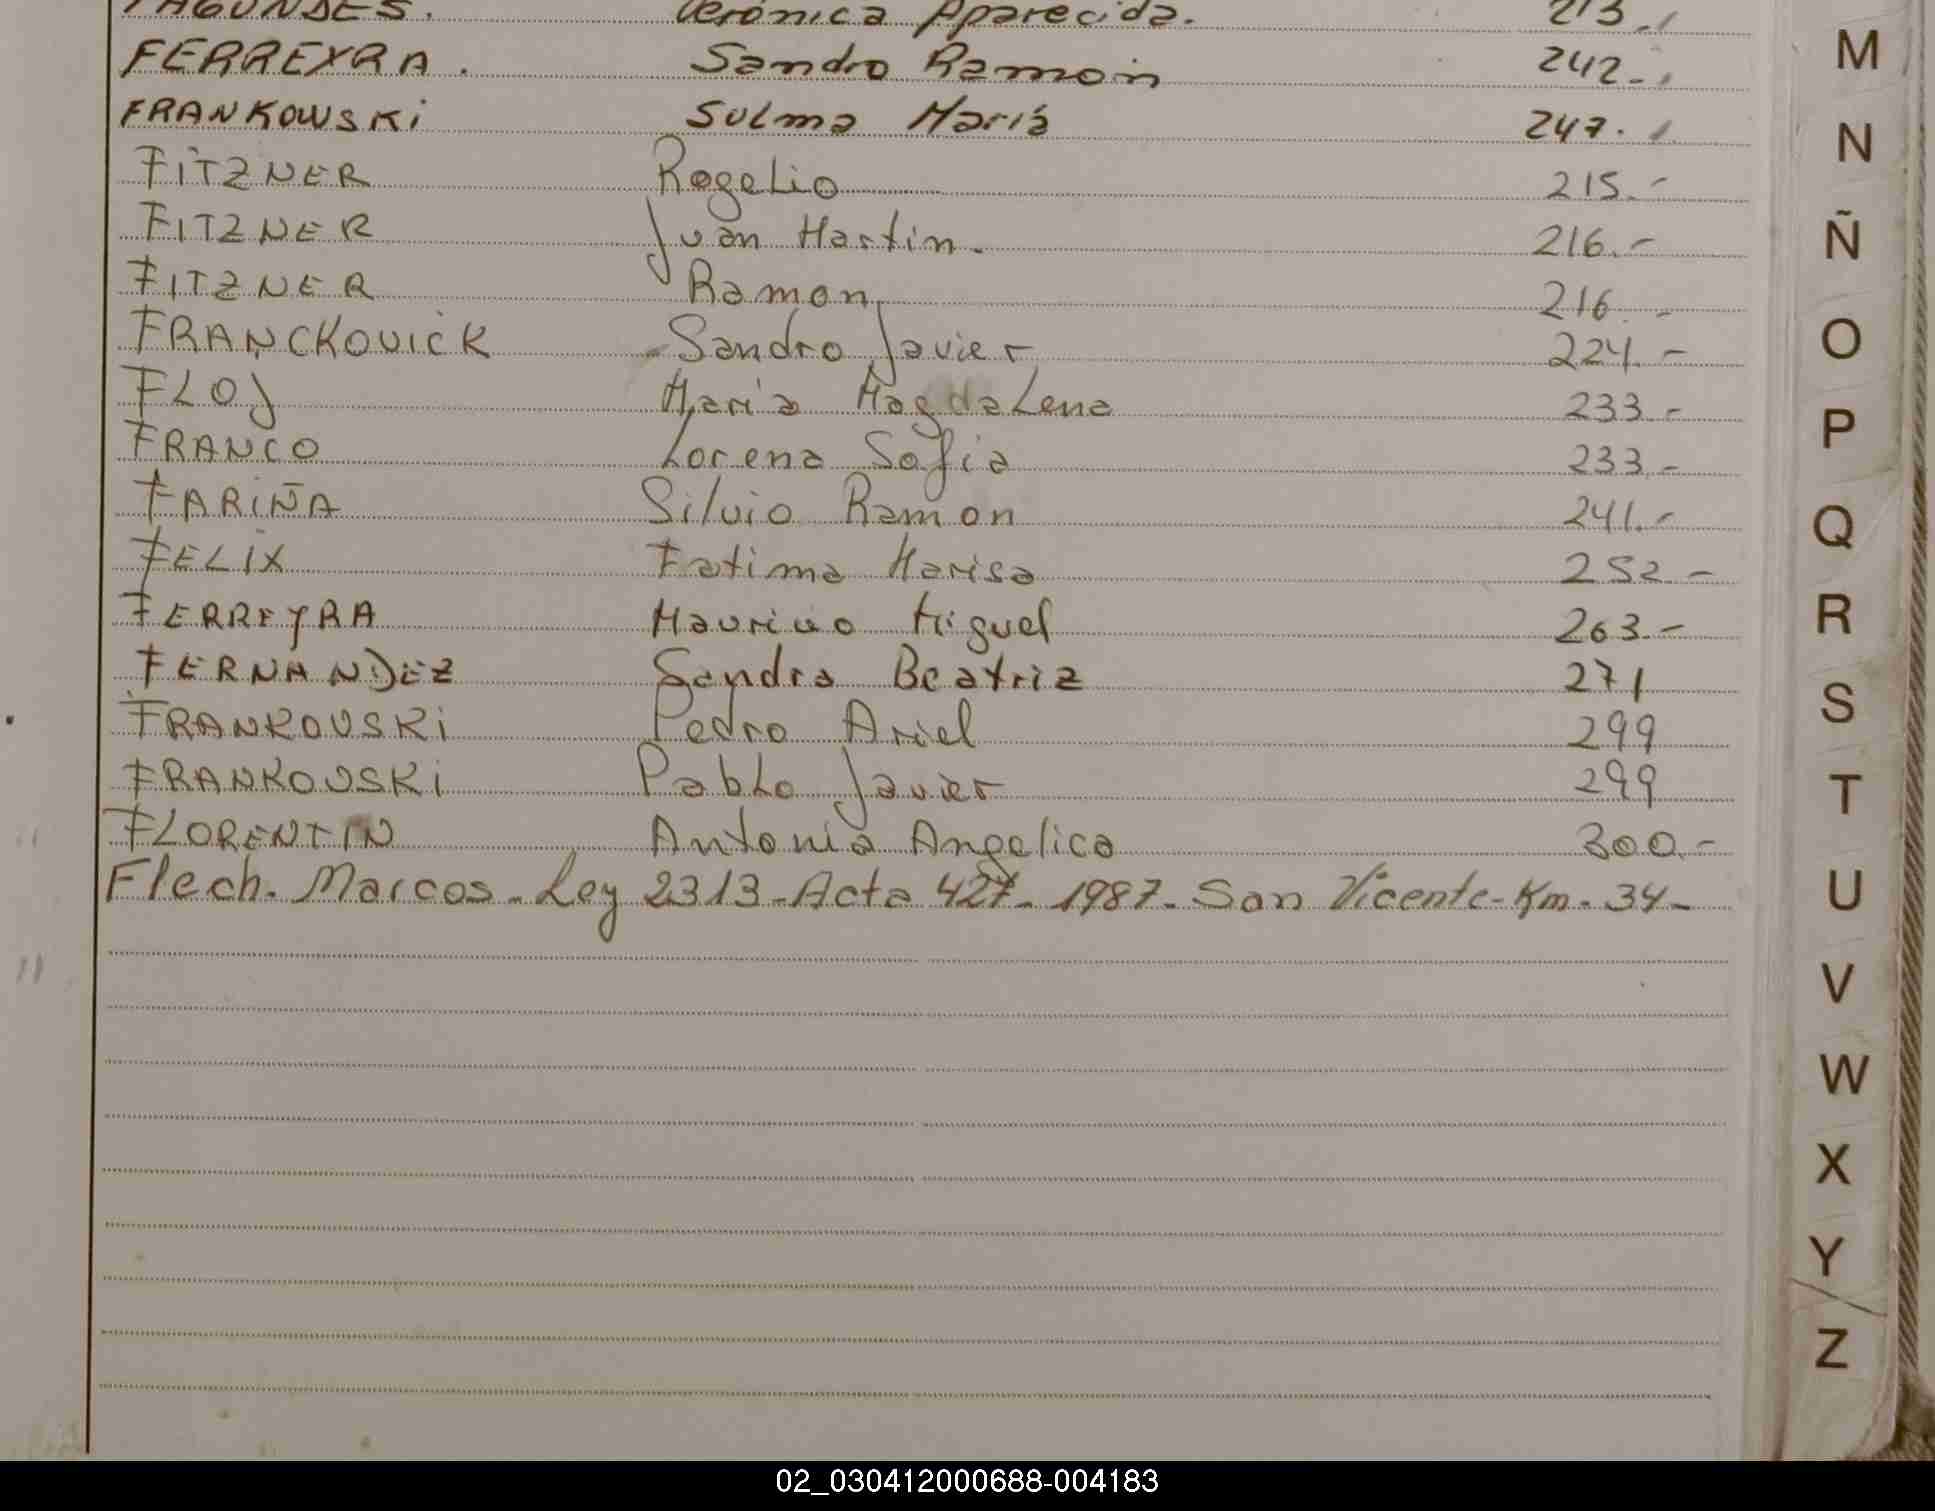 FAGUNDES. Verónica Aparecida. 213.
FERREYRA. Sandro Ramón 242.-
FRANKOWSKi Sulma María 247.
FiTZNER Rogelio 215.-
FITZNER Juan Martin. 216.-
FITZNER Ramon 216.-
FRANCKOVICK Sandro Javier 224.-
FLOJ Maria Magdalena 233.-
FRANCO Lorena Sofia 233.-
FARIÑA Silvio Ramon 241.-
FELIX Fatima Marisa 252.-
FERREYRA Mauricio Miguel 263.-
FERNANDEZ Sandra Beatriz 271
FRANKOVSKi Pedro Ariel 299
FRANKOVSKi Pablo Javier 299
FLORENTIN Antonia Angelica 300.-
Flech. Marcos - Ley 2313 - Acta 427 - 1987 - San Vicente - Km. 34 -
M
N
Ñ
O
P
Q
R
S
T
U
V
W
X
Y
Z
02_030412000688-004183